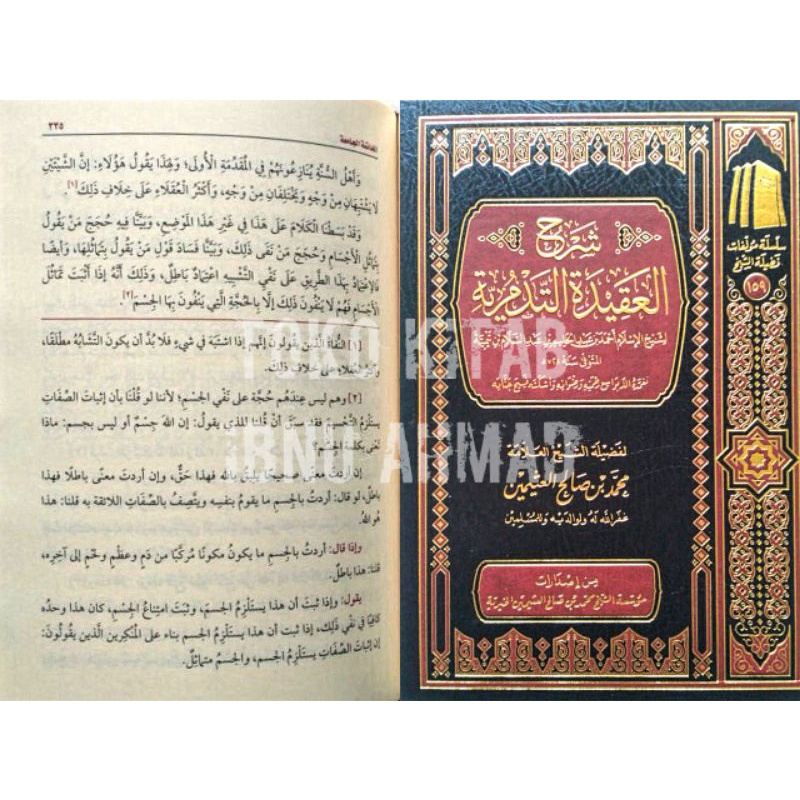 ٣٣٥
القاعدة الجامعة
وَأَهْلُ السُّنَّةِ يُنَازِعُونَهُمْ فِي المُقَدِّمَةِ الأُولَى؛ وَلِهَذَا يَقُولُ هَؤُلَاءِ: إِنَّ الشَّيْئَيْنِ
لَا يَشْتَبِهَانِ مِنْ وَجْهٍ وَيَخْتَلِفَانِ مِنْ وَجْهٍ، وَأَكْثَرُ العُقَلَاءِ عَلَى خِلَافِ ذَلِكَ[١].
وَقَدْ بَسَطْنَا الكَلَامَ عَلَى هَذَا فِي غَيْرِ هَذَا المَوْضِعِ، وَبَيَّنَّا فِيهِ حُجَجَ مَنْ يَقُولُ
بِتَمَاثُلِ الأَجْسَامِ وَحُجَجَ مَنْ نَفَى ذَلِكَ، وَبَيَّنَّا فَسَادَ قَوْلِ مَنْ يَقُولُ بِتَمَاثُلِهَا، وَأَيْضًا
فَالِاعْتِمَادُ بِهَذَا الطَّرِيقِ عَلَى نَفْيِ التَّشْبِيهِ اعْتِمَادٌ بَاطِلٌ، وَذَلِكَ أَنَّهُ إِذَا أَثْبَتَ تَمَاثُلَ
الأَجْسَامِ فَهُمْ لَا يَنْفُونَ ذَلِكَ إِلَّا بِالحُجَّةِ الَّتِي يَنْفُونَ بِهَا الجِسْمَ[٢].
[١] النُّفاةُ الَّذين يقولُونَ إنَّهم إذا اشتبَهَ في شيءٍ فلا بُدَّ أن يكونَ التَّشابُهُ مطلقًا،
العُقلاء على خِلافِ ذلك.
[٢] وهم ليس عِندَهم حُجَّة على نَفْيِ الجِسْمِ؛ لأننا لو قُلْنا بأن إثباتَ الصِّفاتِ
يستلزِمُ التَّجْسيمَ فقد سبَقَ أنْ قُلنا للذي يقولُ: إن اللهَ جِسْمٌ أو ليس بجسم: ماذا
تعني بكلمةِ الجِسْمِ؟
إن أردتَ معنًى صحيحًا يليقُ بالله فهذا حَقٌّ، وإن أردتَ معنًى باطلًا فهذا
باطلٌ، لو قال: أردتُ بالجِسمِ ما يقومُ بنفسِه ويتَّصِفُ بالصِّفاتِ اللائقة به قلنا: هذا
هو اللهُ.
وإذا قال: أردتُ بالجِسمِ ما يكونُ مكونًا مُركَّبًا من دَمٍ وعظْمٍ ولحْمٍ إلى آخِرِه،
قلنا: هذا باطلٌ.
يقول: وإذا ثبتَ أن هذا يستَلْزِمُ الجسمَ، وثبَتَ امتِناعُ الجِسْمِ، كان هذا وحدَه
كافيًا في نَفْي ذلك، إذا ثبت أن هذا يستَلْزِمُ الجسم بناء على المُنكِرين الَّذين يقولُونَ:
إن إثباتَ الصِّفاتِ يستلزِمُ الجسم، والجسمُ متماثلٌ.
TOKO KITAB
IBNU AHMAD
سلسلة مؤلفات
فضيلة الشيخ
١٥٩
شرح
العقيدة التدمرية
لشيخ الإسلام أحمد بن عبد الحليم بن عبد السلام بن تيمية
المتوفى سنة ٧٢٨هـ
تغمده الله بواسع رحمته ورضوانه وأسكنه فسيح جناته
لفضيلة الشيخ العلامة
محمد بن صالح العثيمين
غفر الله له ولوالديه وللمسلمين
من إصدارات
مؤسسة الشيخ محمد بن صالح العثيمين الخيرية